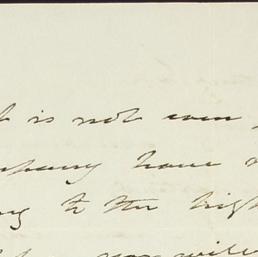 is not even
mpany have
ng to the high
you will